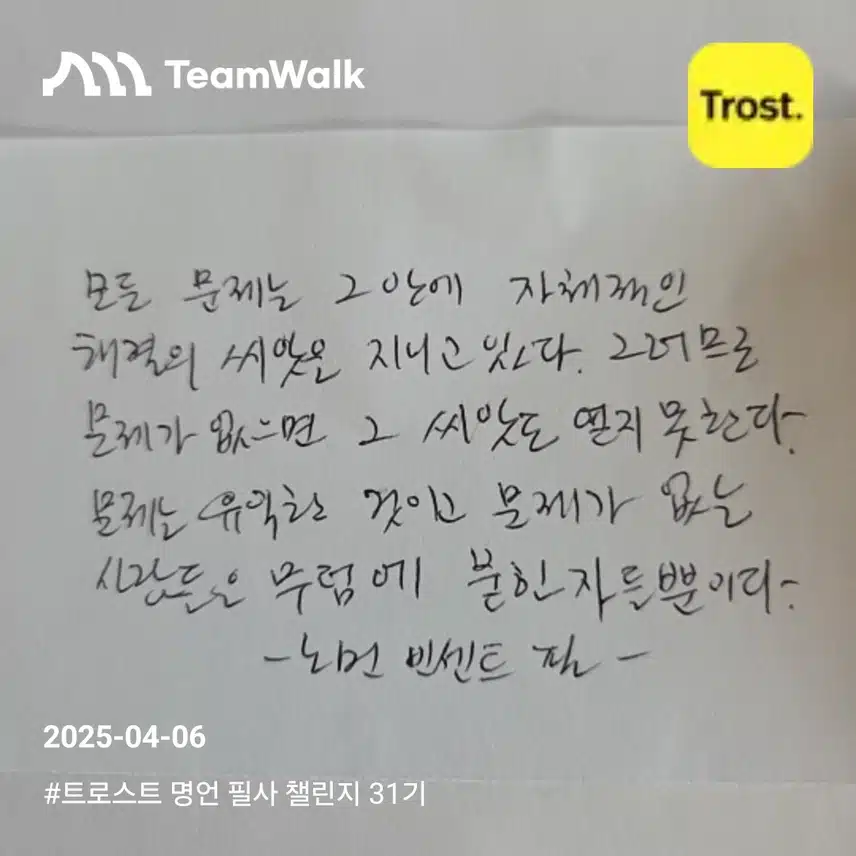 TeamWalk
Trost.
모든 문제는 그 안에 자체적인
해결의 씨앗은 지니고 있다. 그러므로
문제가 없으면 그 씨앗도 얻지 못한다.
문제는 유익한 것이고 문제가 없는
사람들은 무덤에 묻힌 자들뿐이다.
-노먼 빈센트 필-
2025-04-06
#트로스트 명언 필사 챌린지 31기